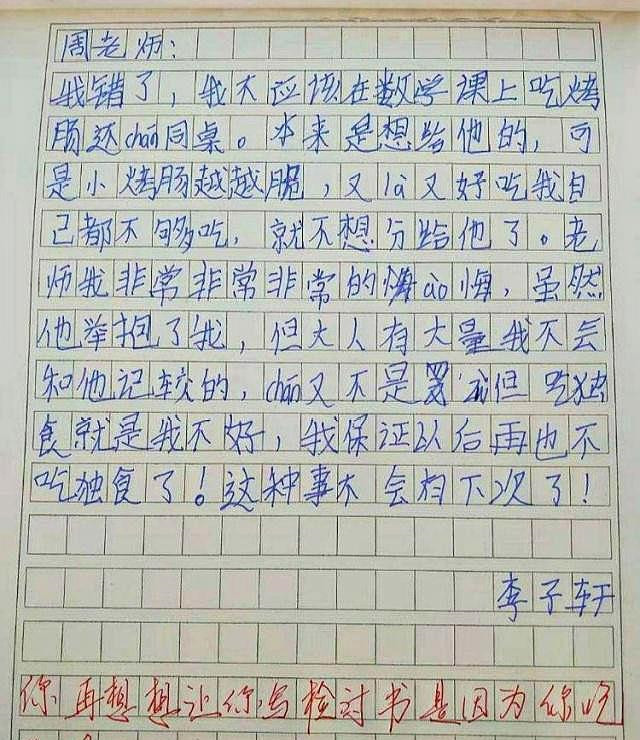 周老师：
我错了，我不应该在数学课上吃烤
肠还chán同桌。本来是想给他的，可
是小烤肠越越脆，又là又好吃我自
己都不够吃，就不想分给他了。老
师我非常非常非常的悔ào悔，虽然
他举抱了我，但大人有大量我不会
和他记较的，chán又不是罪但吃独
食就是我不好，我保证以后再也不
吃独食了！这种事不会有下次了！
李子轩
你再想想让你写检讨书是因为你吃